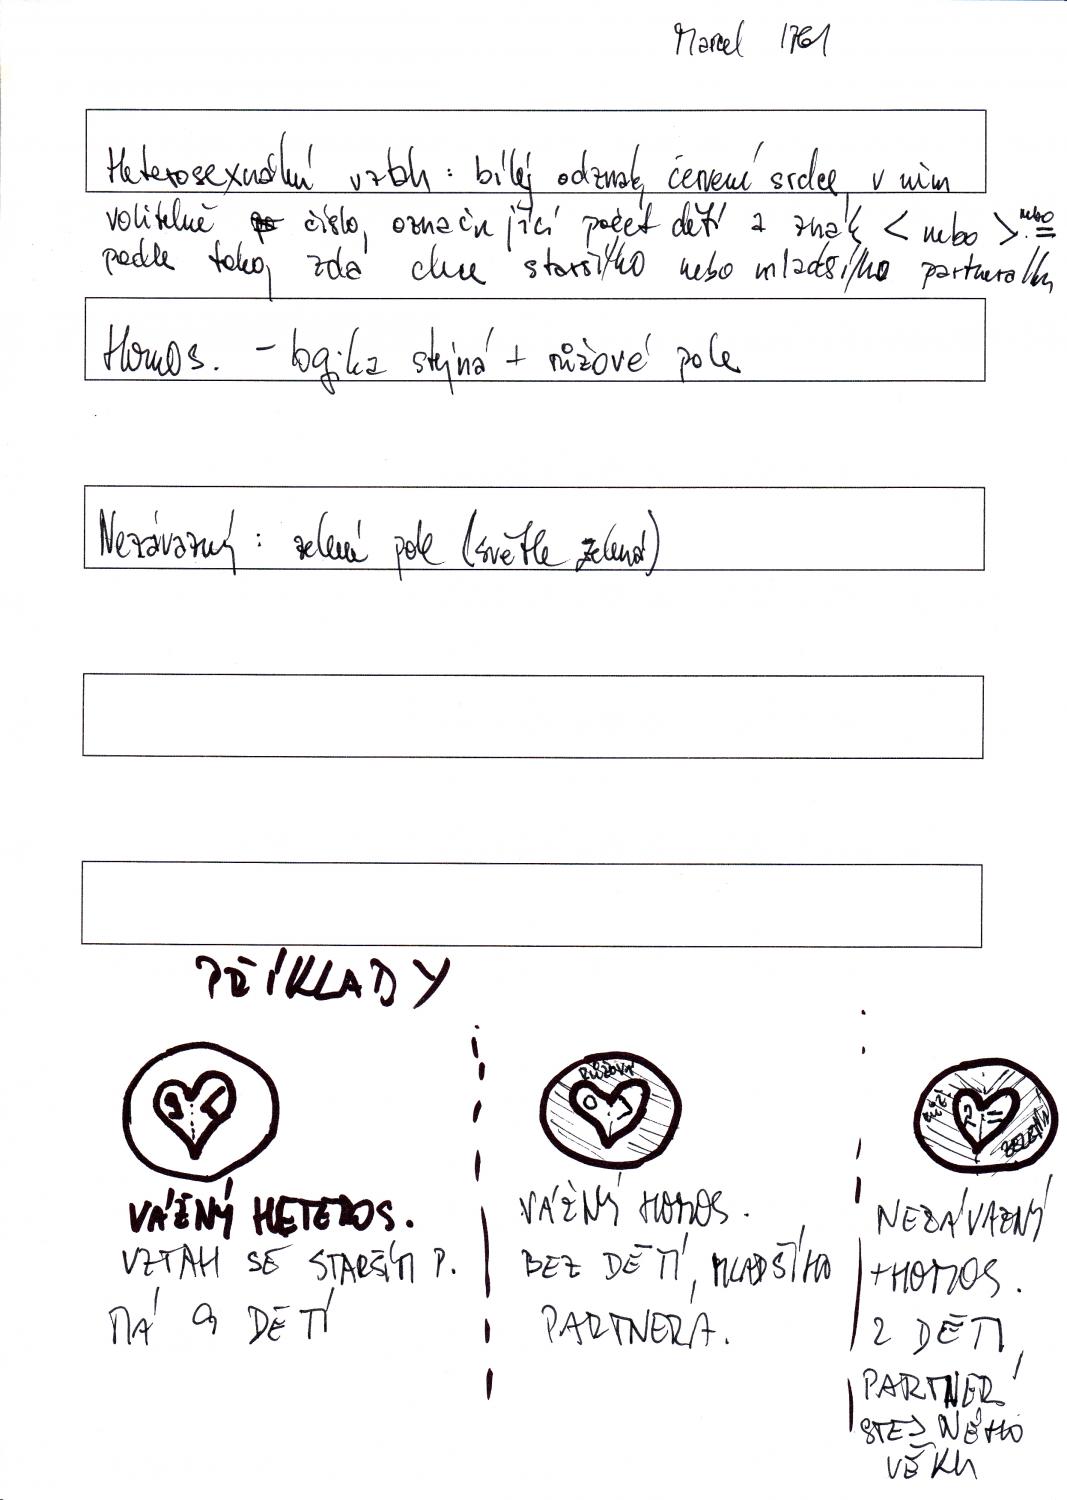 Marcel 1761
Heterosexuální vztah : bílý odznak, červené srdce, v něm
volitelně číslo, označující počet dětí a znak < nebo > nebo =
podle toho, zda chce staršího nebo mladšího partnera/ku
Homos. - logika stejná + růžové pole
Nezávazný : zelené pole (světle zelená)
PŘÍKLADY
9
RŮŽOVÁ
0
2 =
ZELENÁ
VÁŽNÝ HETEROS.
VZTAH SE STARŠÍM P.
MÁ 9 DĚTÍ
VÁŽNÝ HOMOS.
BEZ DĚTÍ, MLADŠÍHO
PARTNERA.
NEZÁVAZNÝ
+HOMOS.
2 DĚTI,
PARTNER
STEJNÉHO
VĚKU